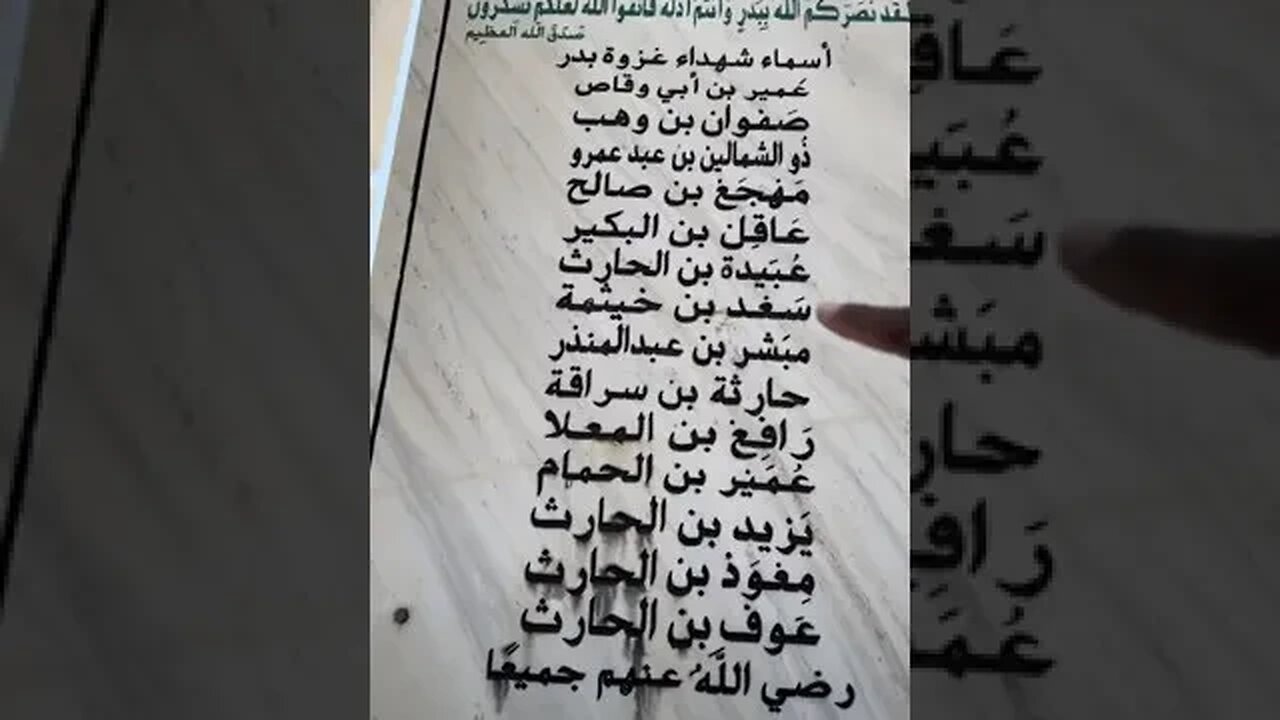 لقد نَصَرَكُمُ الله بِبَدْرٍ وَأنتم أذلة فاتقوا الله لعلكم تشكرون
صَدَقَ الله العظيم
أسماء شهداء غزوة بدر
عَمير بن أبي وقاص
صَفوان بن وهب
ذُو الشمالين بن عبد عمرو
مَهجَع بن صالح
عَاقِل بن البكير
عُبَيدة بن الحارث
سَعد بن خيثمة
مبَشر بن عبدالمنذر
حارثة بن سراقة
رَافِع بن المعلا
عُمَير بن الحمام
يَزيد بن الحارث
مِعوَذ بن الحارث
عَوف بن الحارث
رضي اللَّهُ عنهم جميعًا